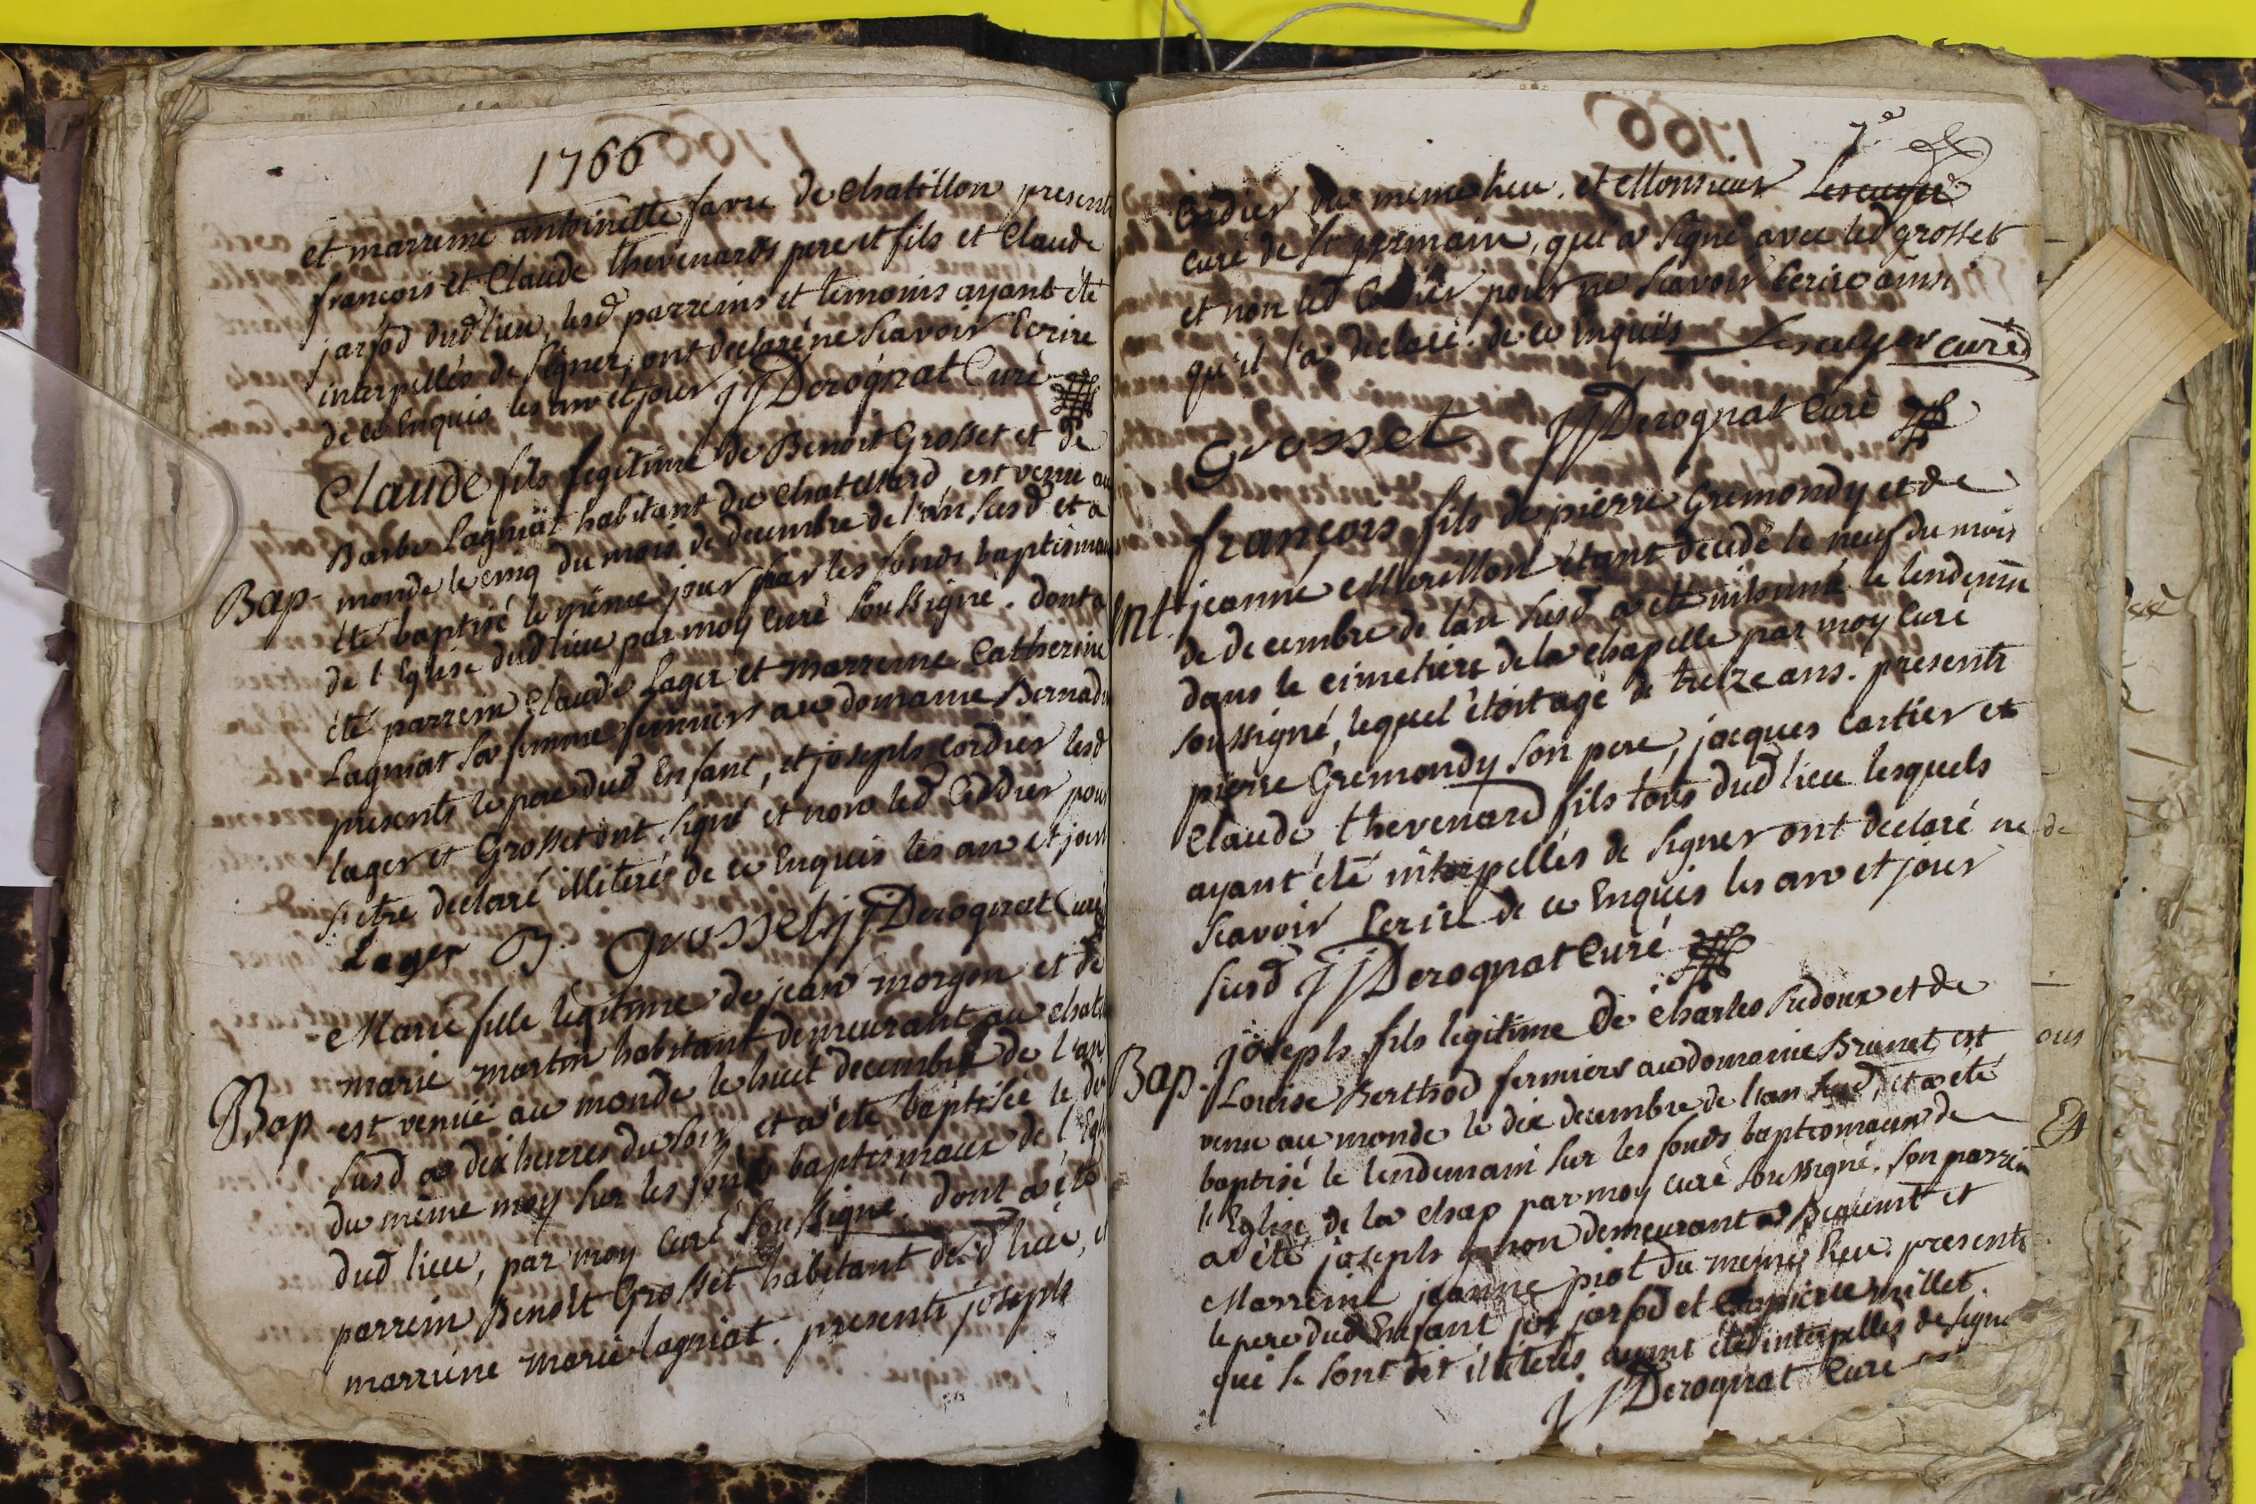 1766
et marreine antoinette favre de Chatillon presents
françois et Claude thevenards pere et fils et Claude
jarsod dud lieu, lesd parreins et temoins ayant été
interpellés de signer, ont declaré ne scavoir Ecrire
de ce Enquis les an et jour jjDerognat Curé
Claude fils legitime de Benoit Grosset et de
Barbe Lagniat habitant du Chatellard, est venu au
Bap- monde le cinq du mois de decembre de l'an susd et a
été baptisé le même jour sur les fonds baptismaux
de l'Eglise dud lieu par moy Curé soussigné. dont a
été parrein Claude Lager et marreine Catherine
Lagniat sa femme fermiers au domaine
presents le pere dud Enfant, et joseph cordier lesd
lager et Grosset ont signé et non led Cordier pour
s'etre declaré illiterés de ce Enquis les an et jour
Lager B. Grosset jjDerognat Curé
Marie fille legitime de jean morgon et de
marie martin habitant demeurant au
Bap est venüe au monde le huit decembre de l'an
susd a dix heures du soir, et a été baptisée le
du même moy sur les fonds baptismaux de l'
dud lieu, par moy Curé soussigné, dont a été
parrein Benoit Grosset habitant dud lieu,
marreine marie lagniat. presents joseph
1766
7e
Cordier du même lieu. et Monsieur Lescuyer
curé de st germain, qui a signé avec led grosset
et non led Cordier pour ne scavoir Ecrire ainsi
qu'il l'a declaré de ce Enquis Lescuyer curé
Grosset jjDerognat Curé
françois fils de pierre Gremondy et de
Int. jeanne Merellon étant decedé le neuf du mois
de decembre de l'an susd a été inhumé le lendemain
dans le cimetiere de la chapelle par moy Curé
soussigné, lequel étoit agé de treize ans. presents
pierre Gremondy son pere, jacques cartier et
Claude thevenard fils tous dud lieu lesquels
ayant été interpellés de signer ont declaré ne
scavoir Ecrire de ce Enquis les an et jour
susd jjDerognat Curé
joseph fils legitime de Charles Pidoux et de
Bap- Louise Berthod fermiers au domaine Brunet, est
venu au monde le dix decembre de l'an susd, et a été
baptisé le lendemain sur les fonds baptismaux de
l'Eglise de la chap par moy curé soussigné. son parrein
a été joseph demeurant a et
Marreine jeanne piot du meme lieu. presents
le pere dud Enfant jos jarsod et pierre millet
qui se sont dit illiterés ayant été interpellés de signer
jjDerognat Curé
de
ous
Et